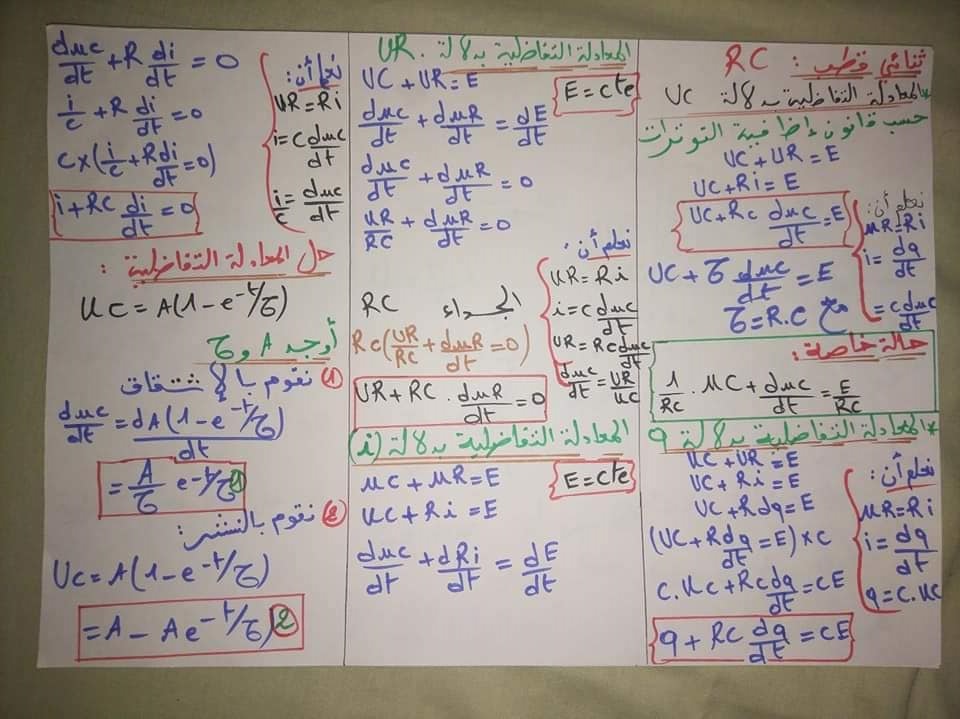 ثنائي قطب : RC
*المعادلة التفاضلية بدلالة UC
حسب قانون إضافية التوترات
UC + UR = E
UC + Ri = E
UC + RC duc/dt = E
نعلم أن:
uR = Ri
i = dq/dt
= c duc/dt
UC + τ duc/dt = E
مع τ = R.C
حالة خاصة:
1/RC . uC + duc/dt = E/RC
*المعادلة التفاضلية بدلالة q
uC + UR = E
UC + Ri = E
UC + Rdq = E
(UC + R dq/dt = E) × C
C.uC + RC dq/dt = CE
q + RC dq/dt = CE
نعلم أن:
uR = Ri
i = dq/dt
q = C.uC
المعادلة التفاضلية بدلالة UR.
UC + UR = E
E = cte
duc/dt + duR/dt = dE/dt
duc/dt + duR/dt = 0
UR/RC + duR/dt = 0
نعلم أن:
UR = Ri
i = c duc/dt
UR = RC duc/dt
duc/dt = UR/uc
الجداء RC
RC(UR/RC + duR/dt = 0)
UR + RC . duR/dt = 0
المعادلة التفاضلية بدلالة (i)
uC + uR = E
E = cte
uC + Ri = E
duc/dt + dRi/dt = dE/dt
duc/dt + R di/dt = 0
i/c + R di/dt = 0
C × (i/c + Rdi/dt = 0)
i + RC di/dt = 0
نعلم أن:
UR = Ri
i = c duc/dt
i/c = duc/dt
حل المعادلة التفاضلية :
uC = A(1 - e-t/τ)
أوجد A و τ
1 نقوم بالإشتقاق
duc/dt = dA(1 - e-t/τ)/dt
= A/τ e-t/τ 1
2 نقوم بالنشر:
UC = A(1 - e-t/τ)
= A - A e-t/τ 2